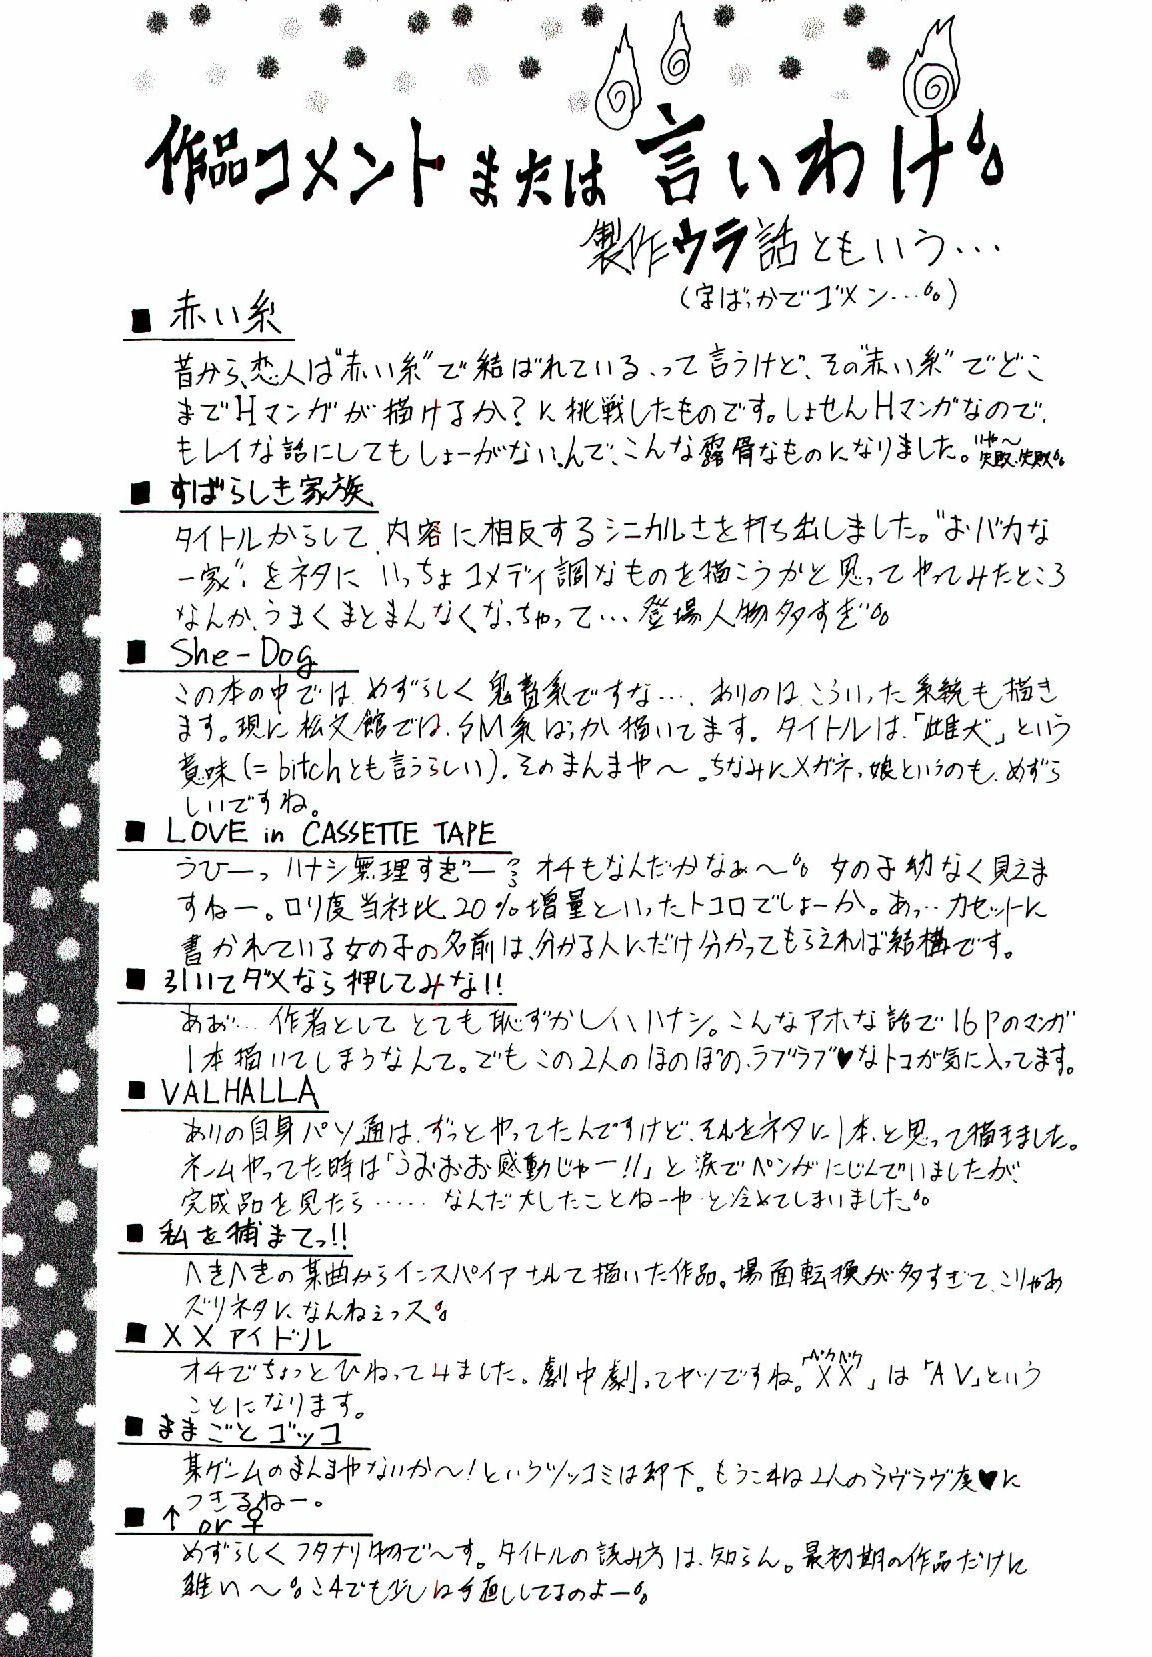 作品コメントまたは言いわけ
製作ウラ話ともいう…
(字ばっかでゴメン…)
■ 赤い糸
昔から、恋人は"赤い糸"で結ばれている、って言うけど、その"赤い糸"でどこ
までHマンガが描けるか?に挑戦したものです。しょせんHマンガなので、
キレイな話にしてもしょーがないんで、こんな露骨なものになりました。いや〜失敗、失敗
■ すばらしき家族
タイトルからして、内容に相反するシニカルさを打ち出しました。"おバカな
一家"をネタに いっちょコメディ調なものを描こうかと思ってやってみたところ
なんか、うまくまとまんなくなっちゃって…登場人物多すぎ
■ She-Dog
この本の中では、めずらしく鬼畜系ですな…、ありのは、こういった系統も描き
ます。現に松文館では、SM系ばっか描いてます。タイトルは、「雌犬」という
意味(=bitchとも言うらしい)。そのまんまや〜。ちなみにメガネっ娘というのも、めずら
しいですね。
■ LOVE in CASSETTE TAPE
うひーっ ハナシ無理すぎー オチもなんだかなぁ〜 女の子幼なく見えま
すねー。ロリ度当社比20%増量といったトコロでしょーか。あっ…カセットに
書かれている女の子の名前は、分かる人にだけ分かってもらえれば結構です。
■ 引いてダメなら押してみな!!
あぉ…作者として とても恥ずかしいハナシ。こんなアホな話で16Pのマンガ
1本描いてしまうなんて。でも この2人のほのぼの、ラブラブ♥なトコが気に入ってます。
■ VALHALLA
ありの自身パソ通は、ずっとやってたんですけど、それをネタに1本、と思って描きました。
ネームやってた時は「うおおお感動じゃー!!」と涙でペンがにじんでいましたが、
完成品を見たら……なんだ大したことねーや と冷めてしまいました
■ 私を捕まてっ!!
へきへきの某曲からインスパイアされて描いた作品。場面転換が多すぎて、こりゃあ
ズリネタに、なんねぇっス
■ XXアイドル
オチでちょっとひねってみました。劇中劇ってヤツですね。「XX」は「AV」という
ことになります。
■ ままごとゴッコ
某ゲームのまんまやないか〜!というツッコミは却下。もうこれは2人のラヴラヴ度♥に
つきるねー。
■ ↑ or ♀
めずらしくフタナリ物で〜す。タイトルの読み方は、知らん。最初期の作品だけに
雑い〜 これでも少しは手直ししてるのよー